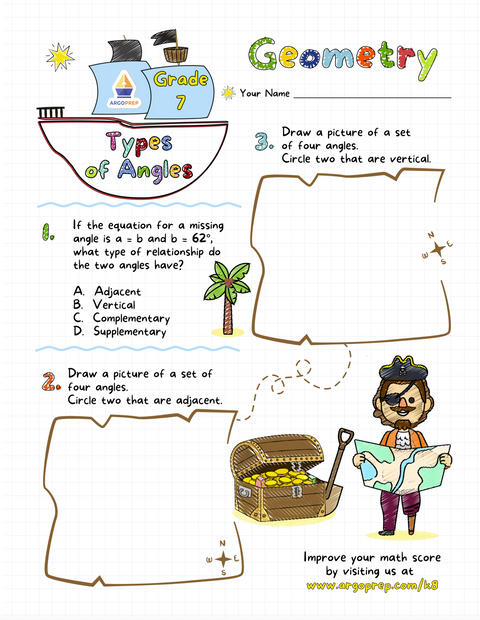 Geometry
Grade
7
ARGOPREP
Your Name
Types
of Angles
1. If the equation for a missing
angle is a = b and b = 62°,
what type of relationship do
the two angles have?
A. Adjacent
B. Vertical
C. Complementary
D. Supplementary
2. Draw a picture of a set of
four angles.
Circle two that are adjacent.
N
W E
S
3. Draw a picture of a set
of four angles.
Circle two that are vertical.
N
W E
S
Improve your math score
by visiting us at
www.argoprep.com/k8